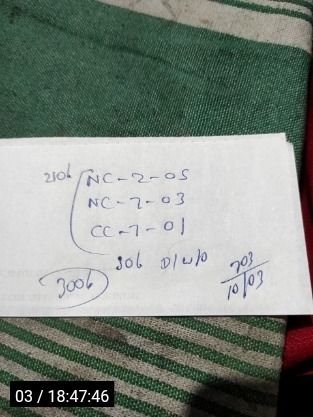 2106 NC-7-05
NC-7-03
CC-7-01
306 D/w/o
3006
703
10/03
03 / 18:47:46